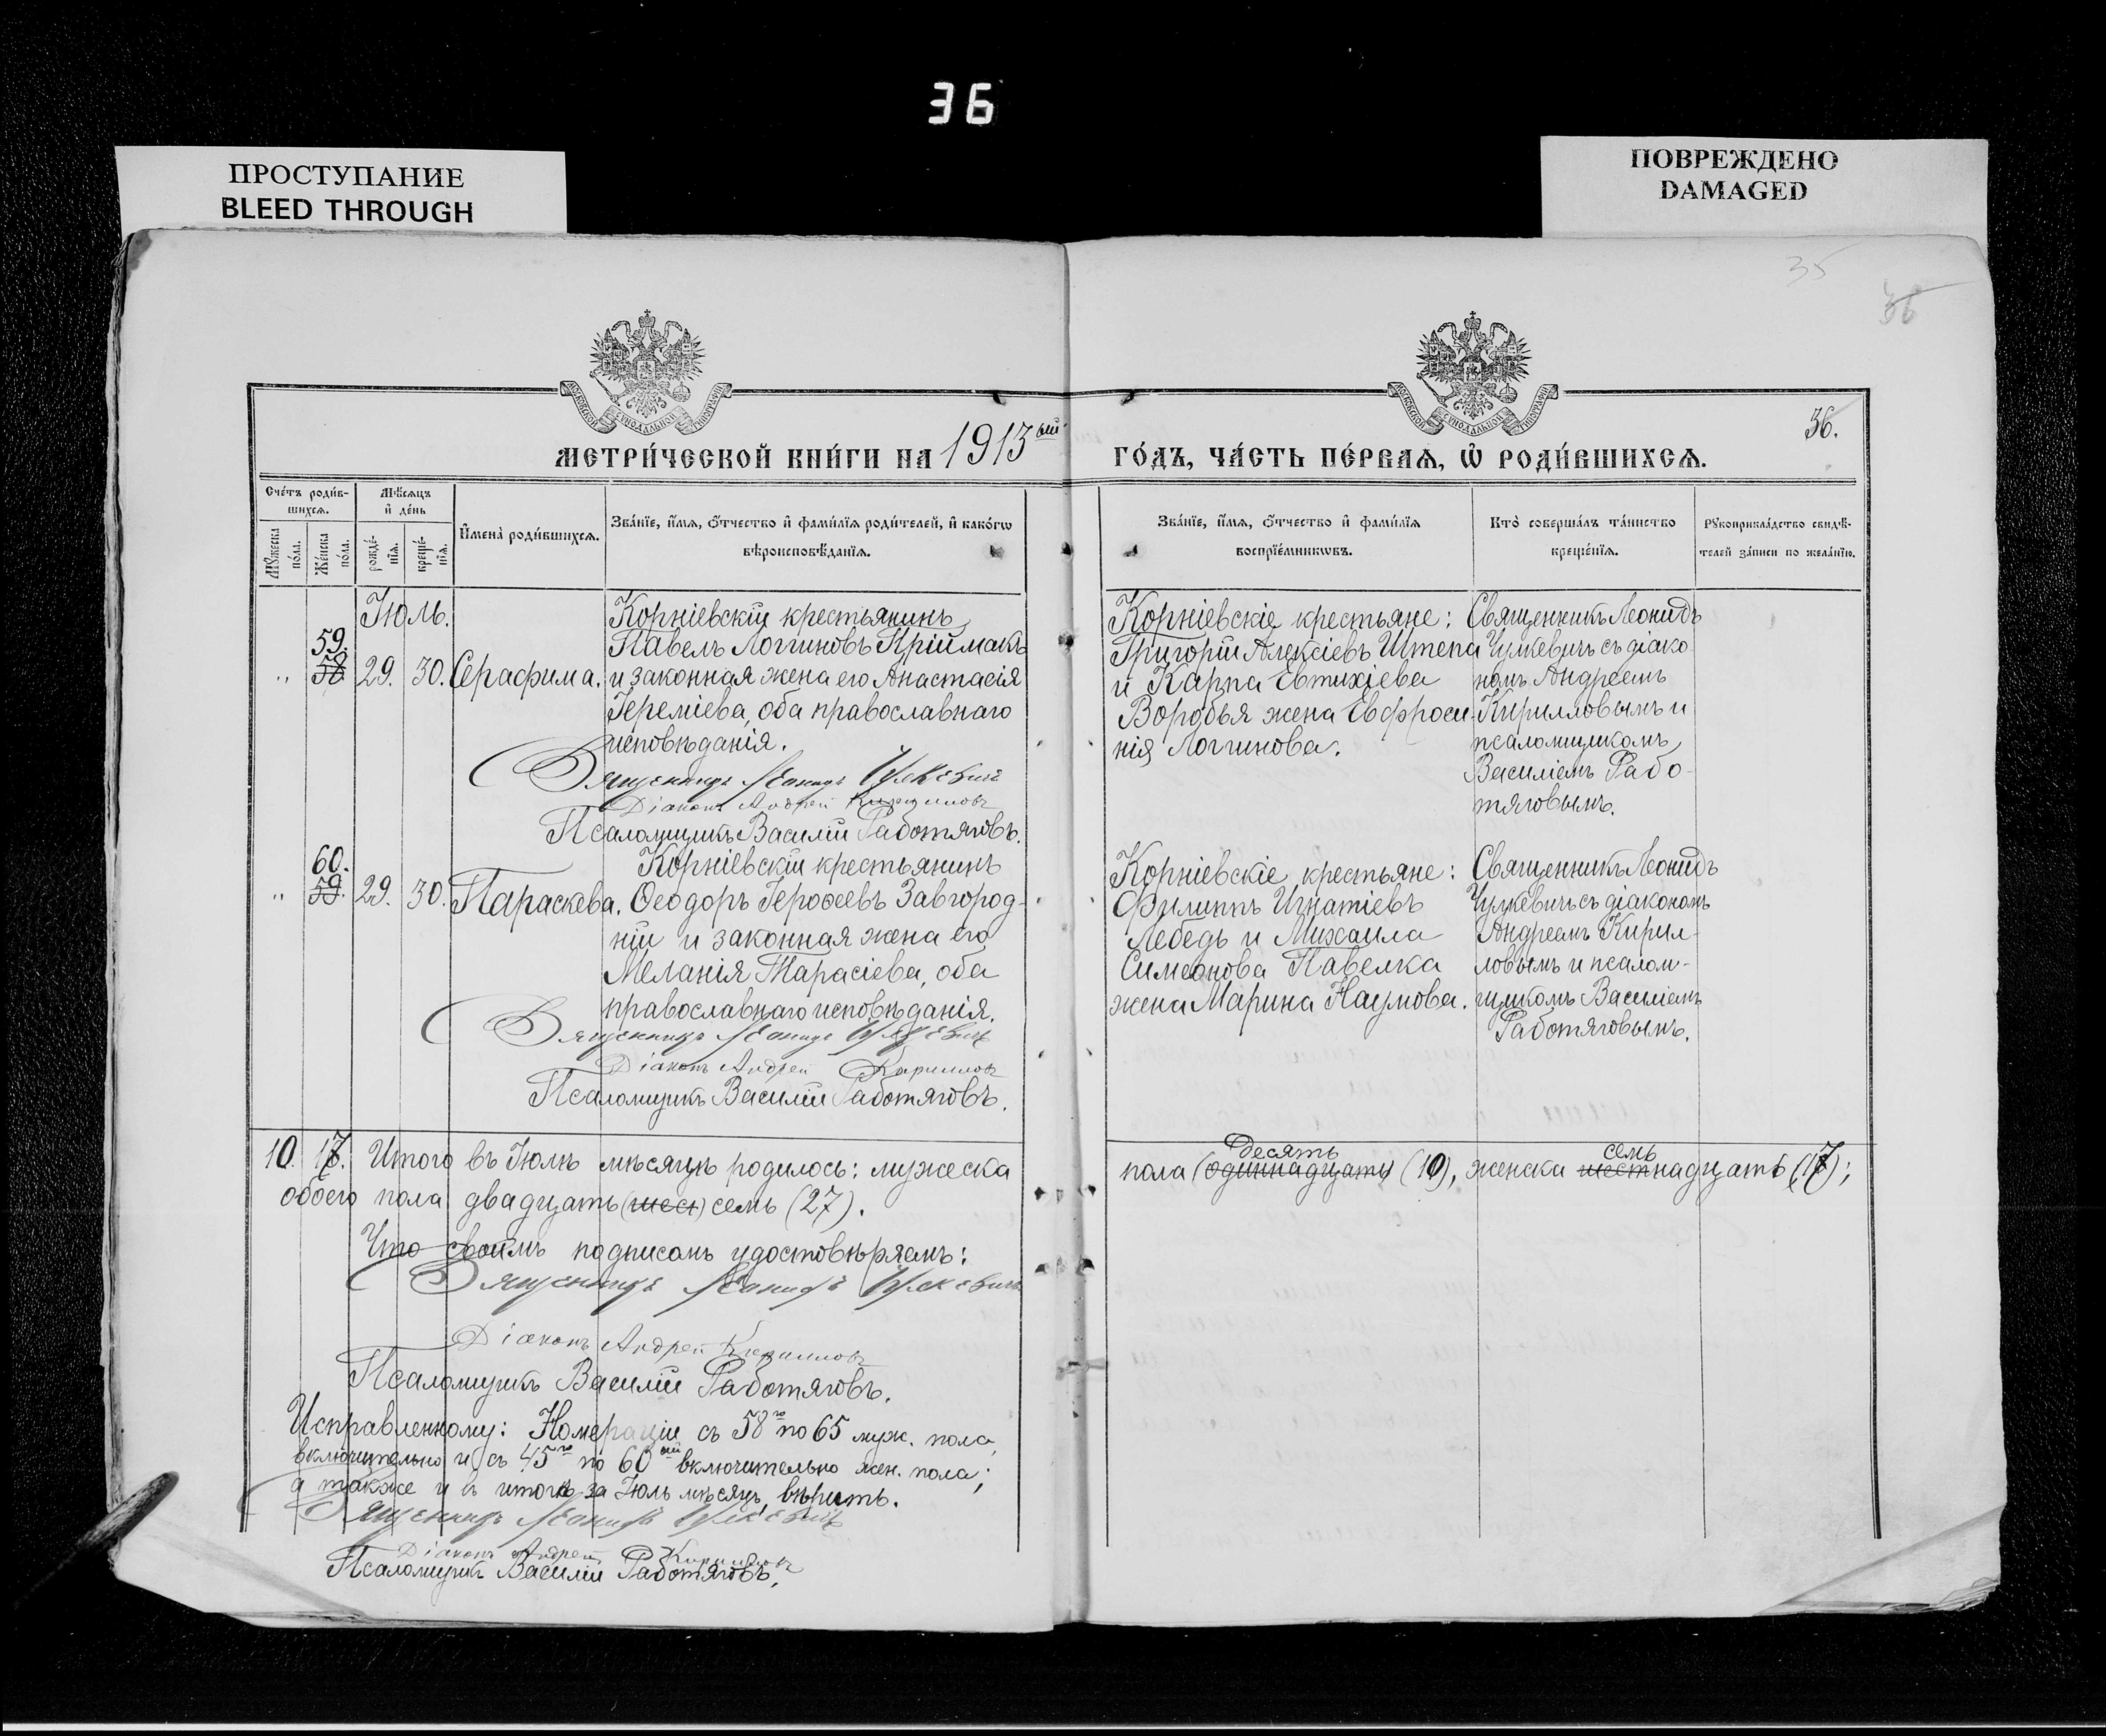 36
ПРОСТУПАНИЕ
BLEED THROUGH
ПОВРЕЖДЕНО
DAMAGED
35
36
36.
МЕТРИ́ЧЕСКОЙ КНИ́ГИ НА 1913ый
ГО́ДЪ, ЧА́СТЬ ПЕ́РВАЯ, Ѡ РОДИ́ВШИХСЯ.
Сче́тъ роди́в-
шихся.
Му́жеска по́ла.
Же́нска по́ла.
Мѣ́сяцъ и де́нь
рожде́нїя.
креще́нїя.
Имена̀ роди́вшихся.
Зва́нїе, и́мя, о́тчество и фами́лїя роди́телей, и како́гѡ
вѣроисповѣ́данїя.
Зва́нїе, и́мя, о́тчество и фами́лїя
воспрїе́мникѡвъ.
Кто̀ соверша́лъ та́инство
креще́нїя.
Рꙋкоприкла́дство свидѣ́-
телей за́писи по жела́нїю.
Іюль.
59.
58
" 29. 30. Серафима.
Корніевскій крестьянинъ
Павелъ Логгиновъ Пріймакъ
и законная жена его Анастасія
Іереміева, оба православнаго
исповѣданія.
Священникъ Леонидъ Чулкевичъ
Діаконъ Андрей Кирилловъ
Псаломщикъ Василій Работяговъ.
Корніевскіе крестьяне:
Григорій Алексіевъ Штепа
и Карпа Евтихіева
Воробья жена Евфроси-
нія Логгинова.
Священникъ Леонидъ
Чулкевичъ съ діако
номъ Андреемъ
Кирилловымъ и
псаломщикомъ
Василіемъ Рабо-
тяговымъ.
60.
59.
" 29. 30. Параскева.
Корніевскій крестьянинъ
Ѳеодоръ Іероѳеевъ Завгород-
ній и законная жена его
Меланія Тарасіева, оба
православнаго исповѣданія.
Священникъ Леонидъ Чулкевичъ
Діаконъ Андрей Кирилловъ
Псаломщикъ Василій Работяговъ.
Корніевскіе крестьяне:
Филиппъ Игнатіевъ
Лебедь и Михаила
Симеонова Павелка
жена Марина Наумова.
Священникъ Леонидъ
Чулкевичъ съ діакономъ
Андреемъ Кирил-
ловымъ и псалом-
щикомъ Василіемъ
Работяговымъ.
10. 17. Итого въ Іюлѣ мѣсяцѣ родилось: мужеска
десять семь
пола (одиннадцать) (10), женска шестнадцать (17);
обоего пола двадцать (шест) семь (27).
Что своимъ подписомъ удостовѣряемъ:
Священникъ Леонидъ Чулкевичъ
Діаконъ Андрей Кирилловъ
Псаломщикъ Василій Работяговъ.
Исправленному: Номераціи съ 58го по 65 муж. пола,
включительно и съ 45го по 60ый включительно жен. пола;
а также и въ итогѣ за Іюль мѣсяцъ, вѣрить.
Священникъ Леонидъ Чулкевичъ
Діаконъ Андрей Кирилловъ
Псаломщикъ Василій Работяговъ.